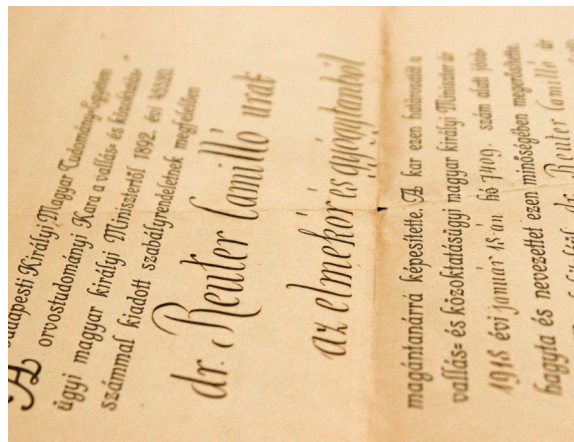 A Budapesti Királyi Magyar Tudomány-Egyetem
orvostudományi Kara a vallás= és közoktatás=
ügyi magyar királyi Minisztertől 1892. évi 45520.
számmal kiadott szabályrendeletnek megfelelően
dr. Reuter Camilló urat
az elmekór és gyógytanból
magántanárrá képesítette. A kar ezen határozatát a
vallás= és közoktatásügyi magyar királyi Miniszter úr
1918 évi január 15 én hó 7409. szám alatt jóvá=
hagyta és nevezettet ezen minőségében megerősítette.
dr. Reuter Camilló úr